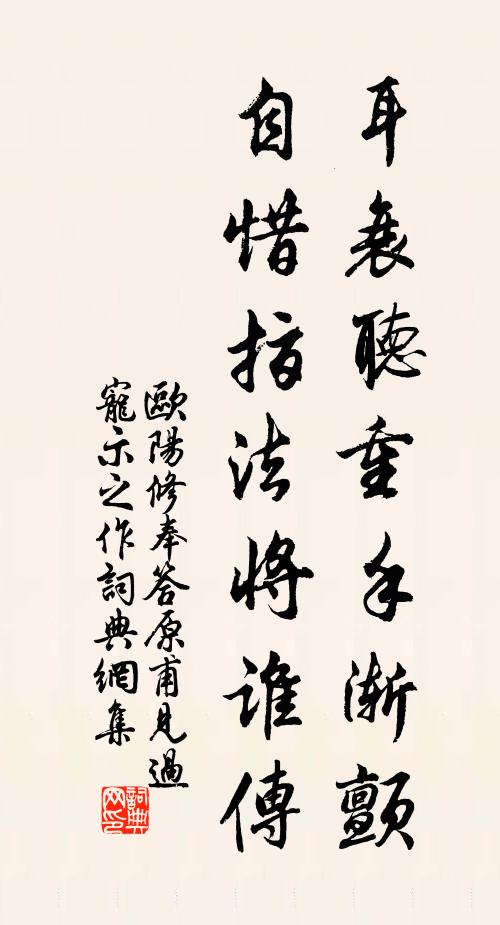 耳衰聽重手漸顫
自惜指法將誰傳
歐陽修奉答原甫見過
寵示之作詞典網集
詞典
网印